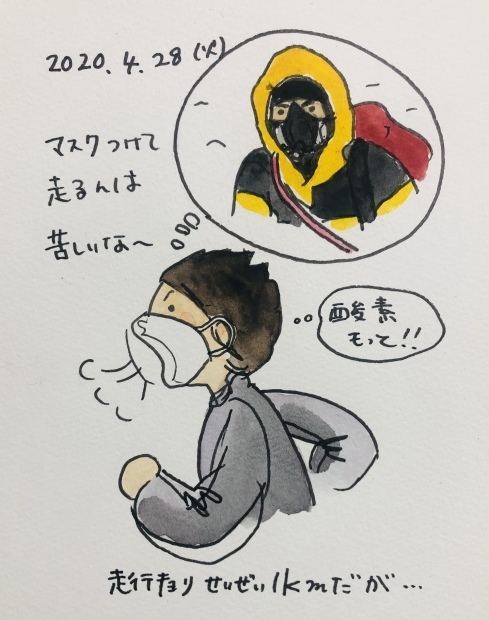 2020.4.28 (火)
マスクつけて
走るんは
苦しいな〜
酸素
もって!!
走行キョリ せいぜい1kmだが…